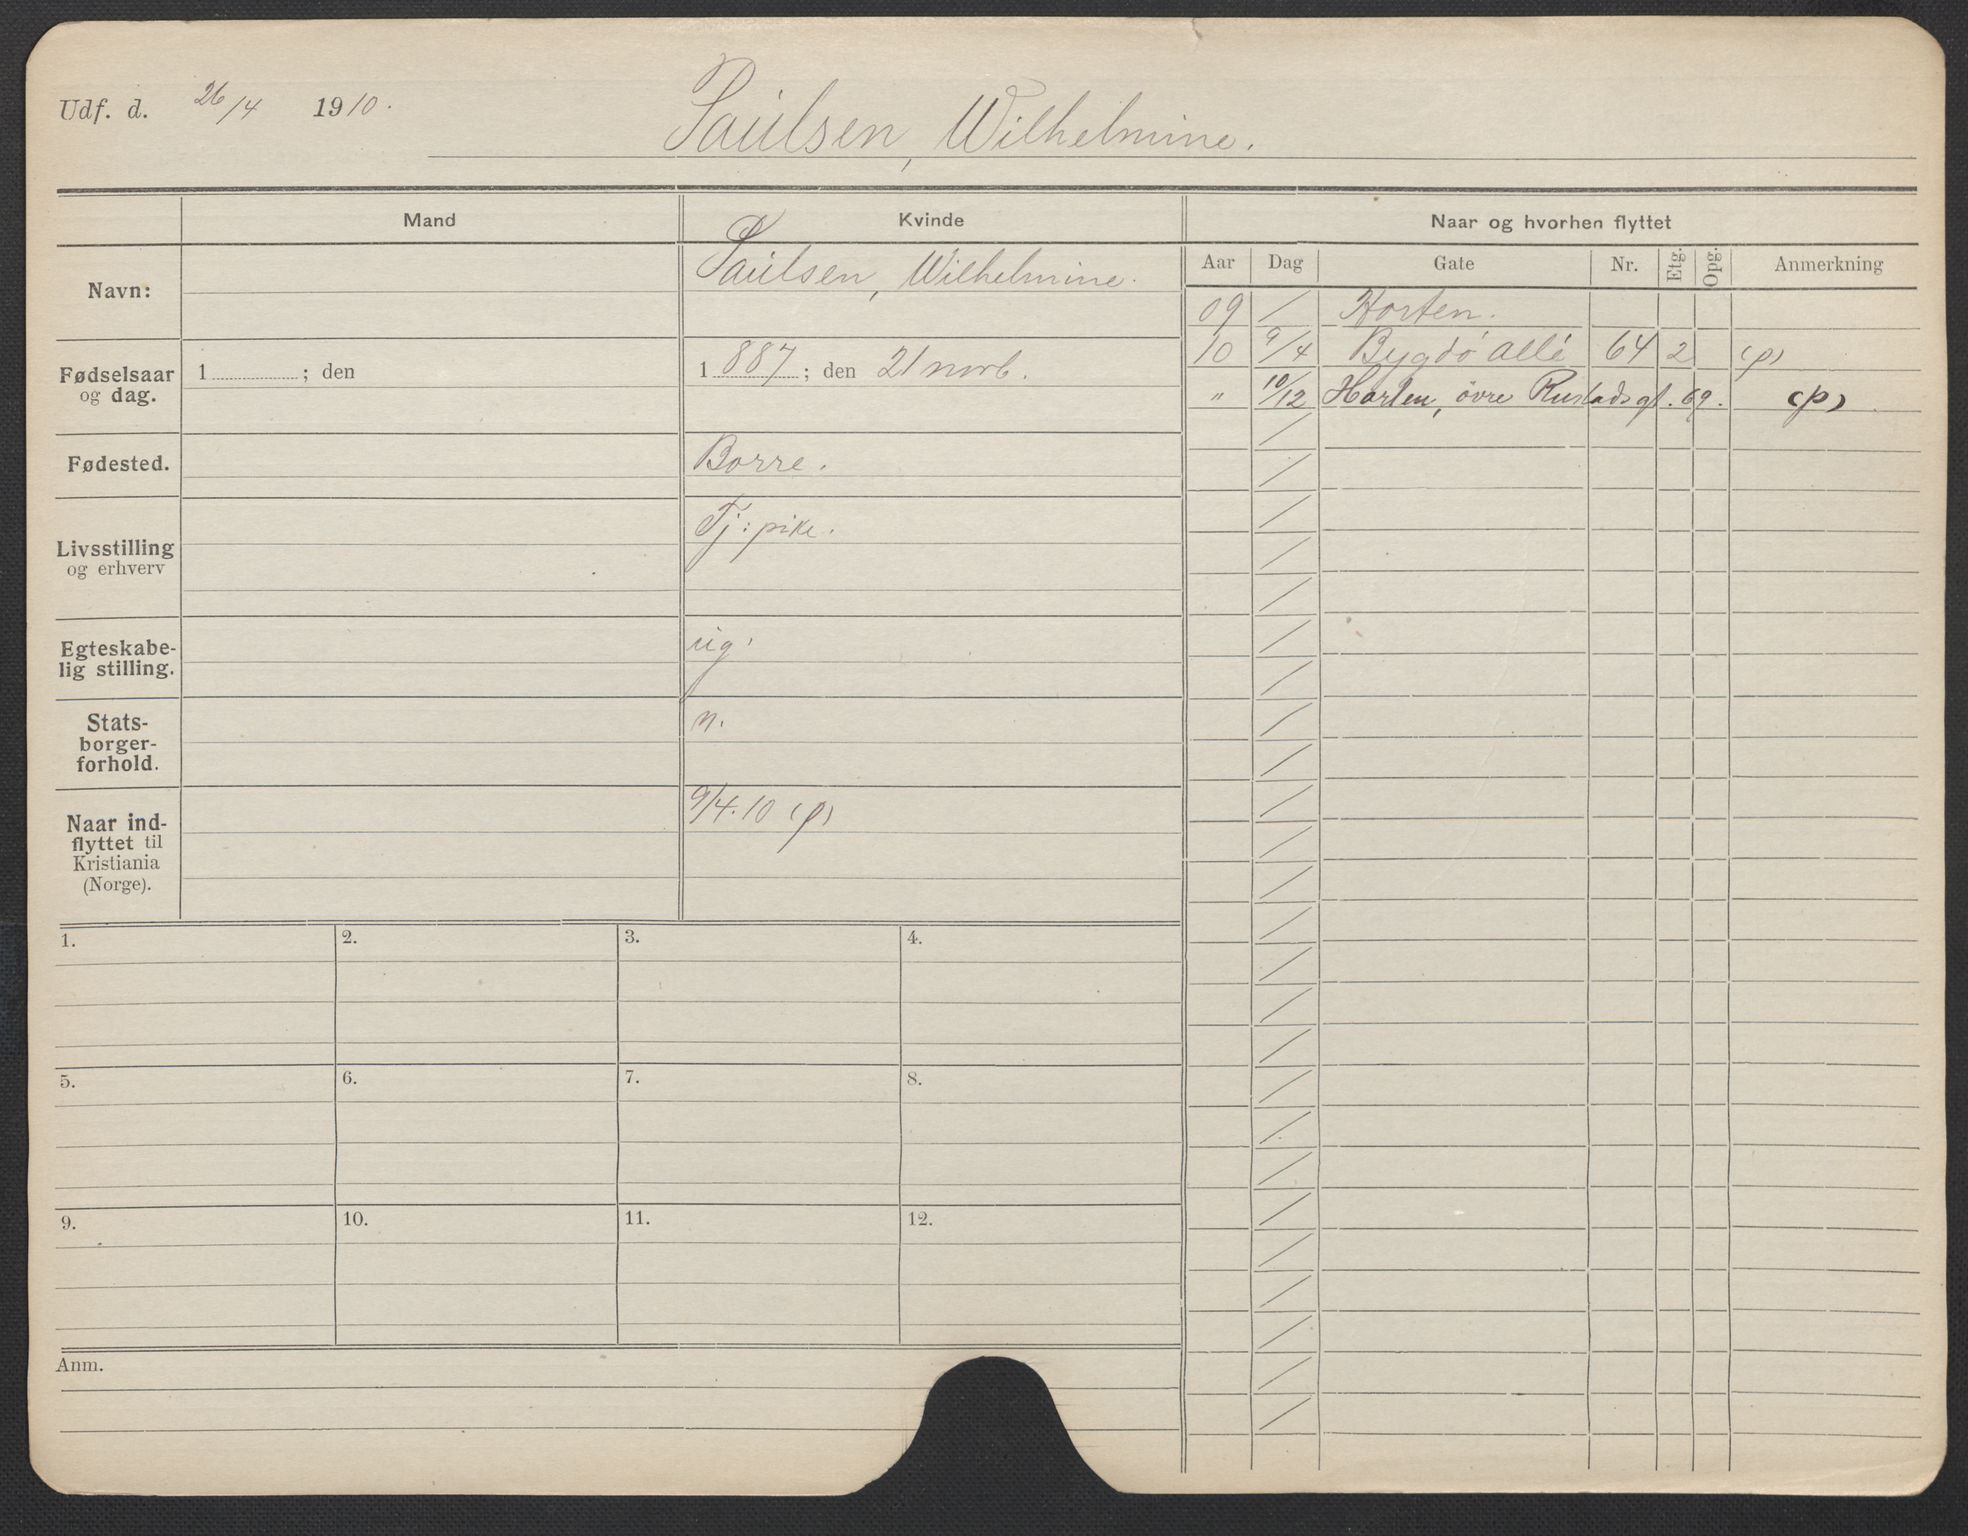 Udf. d. 26/4 1910.
Paulsen, Wilhelmine.
Mand
Kvinde
Naar og hvorhen flyttet
Navn:
Paulsen, Wilhelmine.
Fødselsaar og dag.
1 ; den
1 887 ; den 21 novb.
Fødested.
Borre.
Livsstilling og erhverv
Tj: pike.
Egteskabelig stilling.
ug.
Statsborgerforhold.
n.
Naar indflyttet til Kristiania (Norge).
9/4.10 (p)
Aar Dag Gate Nr. Etg. Opg. Anmerkning
09 / Horten.
10 9/4 Bygdö Allé 64 2 (p)
" 10/12 Horten, övre Rustadsgt. 69. (p)
1. 2. 3. 4.
5. 6. 7. 8.
9. 10. 11. 12.
Anm.